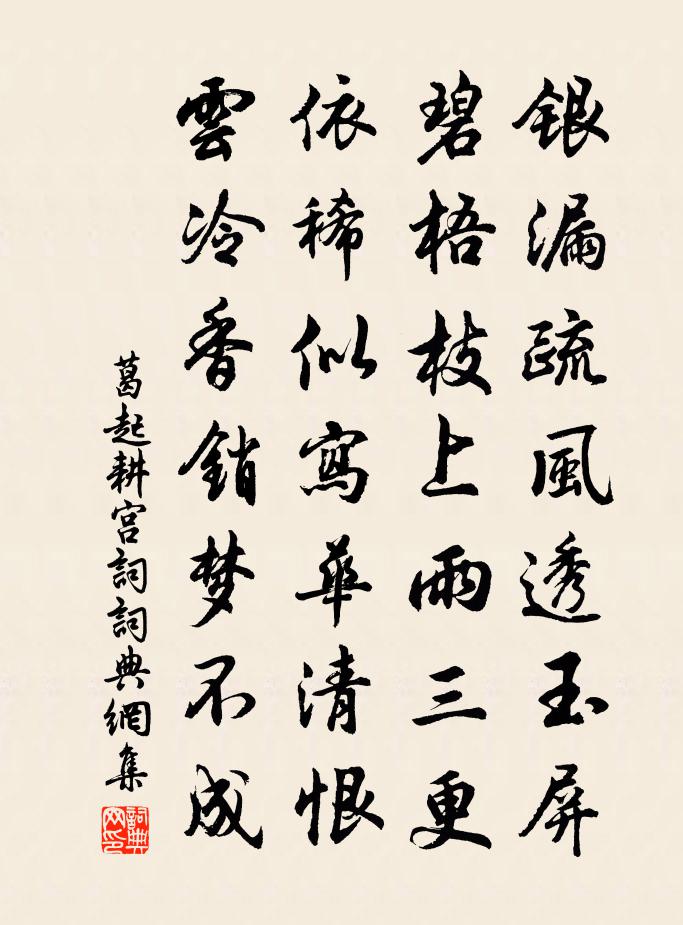 銀漏疏風透玉屏
碧梧枝上雨三更
依稀似寫華清恨
雲冷香銷梦不成
葛起耕宮詞詞典網集
詞典网印